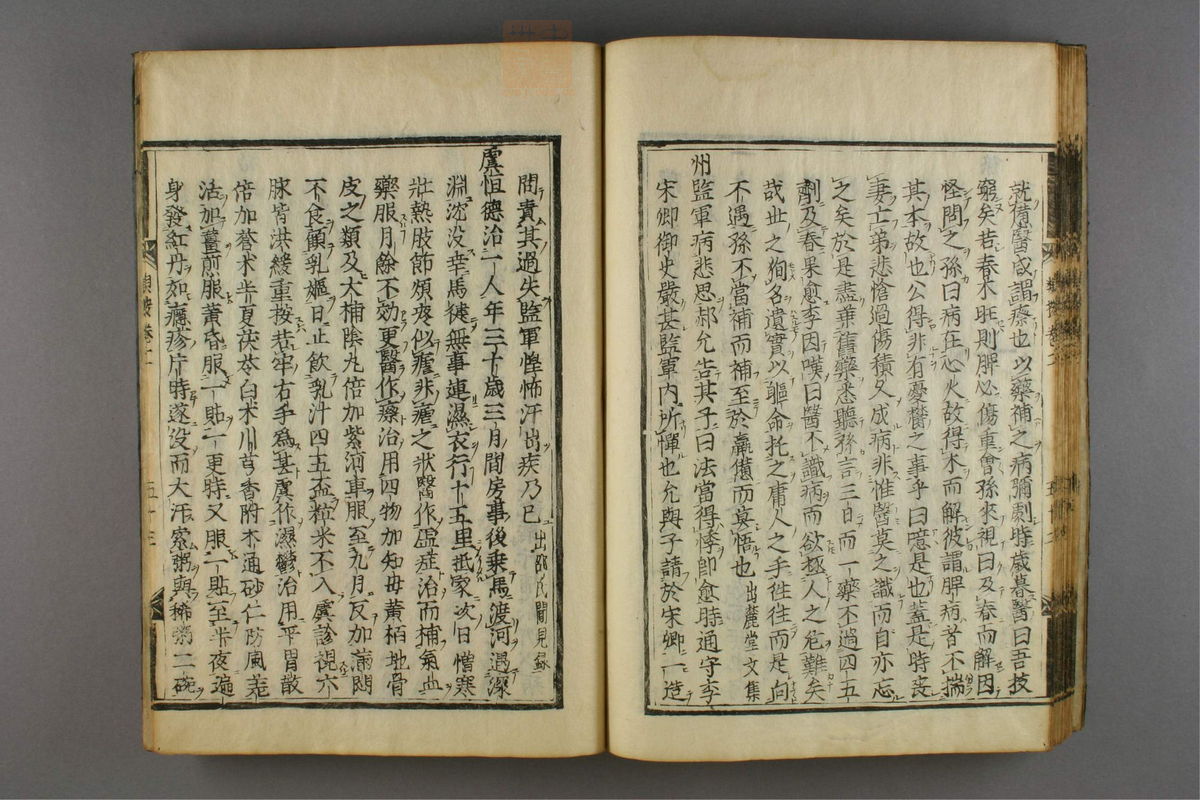 就備醫咸謂瘵也以藥補之病彌劇時歲暮醫曰吾技
窮矣若春木旺則脾必傷重會孫來視曰及春而解因
怪問之孫曰病在心火故得木而解彼謂脾病者不揣
其本故也公得非有憂欝之事乎曰噫是也蓋是時喪
妻亡弟悲愴過傷積久成病非惟醫莫之識而自亦忘
之矣於是盡棄舊藥悉聽孫言三日而一藥不過四五
劑及春果愈李因嘆曰醫不識病而欲拯人之危難矣
哉世之狥名遺實以軀命托之庸人之手徃徃而是向
不遇孫不當補而補至於羸憊而莫悟也 出麓堂文集
州監軍病悲思郝允告其子曰法當得悸即愈時通守李
宋卿御史嚴甚監軍内所憚也允與子請於宋卿一造
問責其過失監軍惶怖汗出疾乃已 出邵氏聞見錄
虞恒德治一人年三十歲三月間房事後乗馬渡河遇深
淵沈没幸馬健無事連濕衣行十五里抵家次日憎寒
壯熱肢節煩疼似瘧非瘧之狀醫作虛症治而補氣血
藥服月餘不効更醫作瘵治用四物加知母黄栢地骨
皮之類及大補陰丸倍加紫河車服至九月反加滿悶
不食顧乳嫗日止飲乳汁四五盃粒米不入虞診視六
脉皆洪緩重按若牢右手為甚虞作濕鬱治用平胃散
倍加蒼术半夏茯苓白术川芎香附木通砂仁防風羌
活加薑煎服黄昏服一貼一更時又服一貼至半夜遍
身發紅丹如癮疹片時遂没而大汗索粥與稀粥二碗